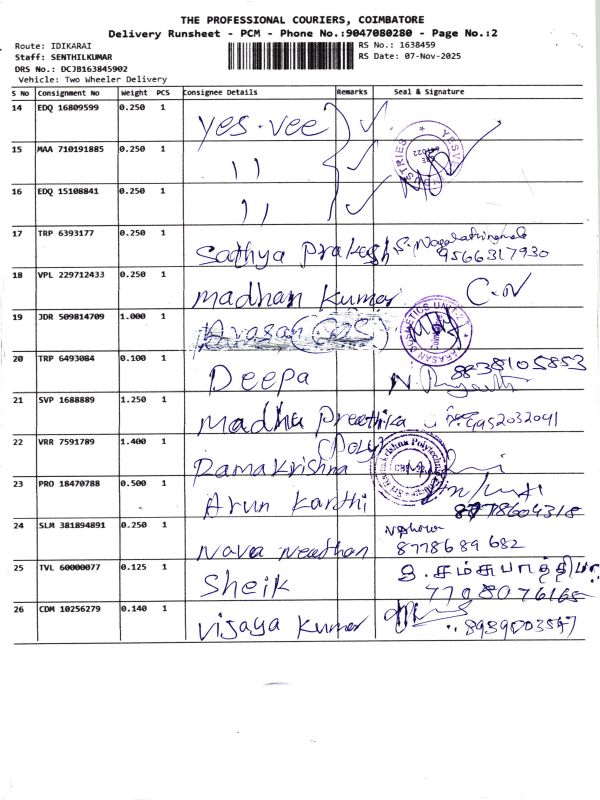 THE PROFESSIONAL COURIERS, COIMBATORE
Delivery Runsheet - PCM - Phone No.:9047080280 - Page No.:2
Route: IDIKARAI
RS No.: 1638459
Staff: SENTHILKUMAR
RS Date: 07-Nov-2025
DRS No.: DCJB163845902
Vehicle: Two Wheeler Delivery
S No Consignment No Weight PCS Consignee Details Remarks Seal & Signature
14 EDQ 16809599 0.250 1 Yes.vee
15 MAA 710191885 0.250 1 ))
16 EDQ 15108841 0.250 1 ))
17 TRP 6393177 0.250 1 Sathya Prakash 9566317930
18 VPL 229712433 0.250 1 Madhan Kumar C.N
19 JDR 509814709 1.000 1 Arasan
20 TRP 6493084 0.100 1 Deepa 8838105853
21 SVP 1688889 1.250 1 Madhu Preethika 9952032091
22 VRR 7591789 1.400 1 Ramakrishna (Poly)
23 PRO 18470788 0.500 1 Arun Karthi 8778604318
24 SLM 381894891 0.250 1 Nava Neethan 8778689682
25 TVL 60000077 0.125 1 Sheik 7708076165
26 CDM 10256279 0.140 1 Vijaya Kumar 8939003547